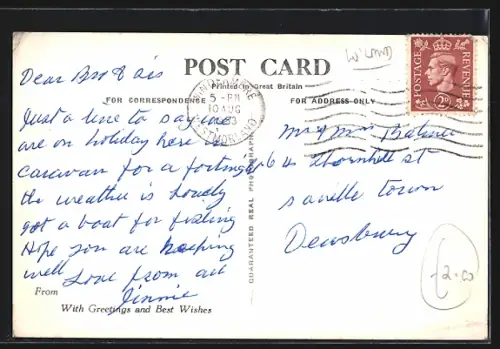 W'LAND
POST CARD
Printed in Great Britain
FOR CORRESPONDENCE
FOR ADDRESS ONLY
POSTAGE REVENUE
2D
WINDERMERE
5 - PM
10 AUG
WESTMORLAND
Dear
Just a line to say we
are on holiday here in
caravan for a fortnight
the weather is lovely
got a boat for fishing
Hope you are keeping
well
Love from all
Jinnie
From
With Greetings and Best Wishes
GUARANTEED REAL PHOTOGRAPH
Mr & Mrs
64 Thornhill st
Saville Town
Dewsbury
£2.00